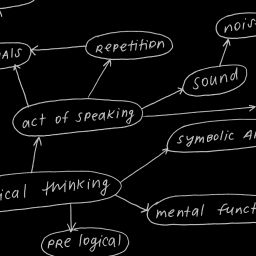 nois
REPETITION
ALS
sound
act of speaking
symbolic A
ical thinking
mental funct
PRE logical